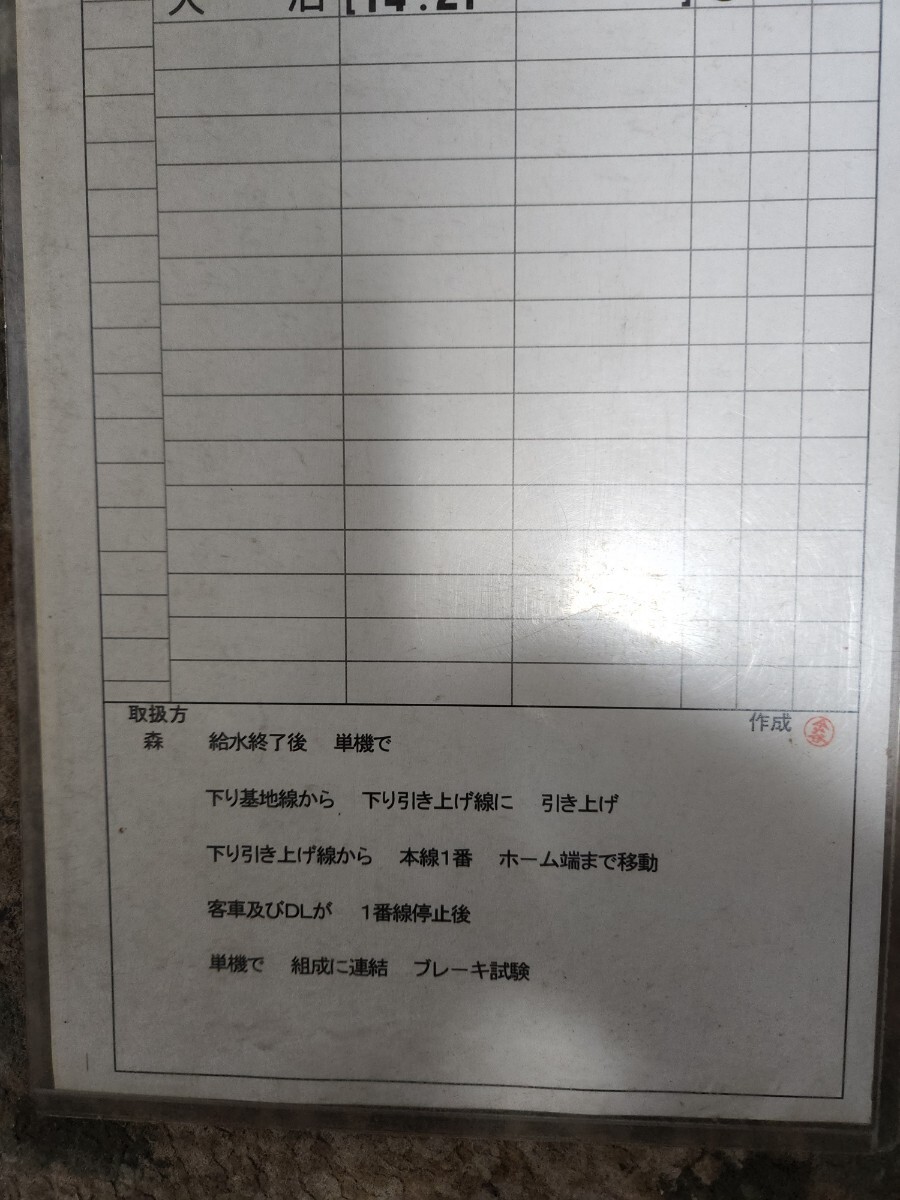 [14:27 ]
取扱方 作成
森 給水終了後 単機で
下り基地線から 下り引き上げ線に 引き上げ
下り引き上げ線から 本線1番 ホーム端まで移動
客車及びDLが 1番線停止後
単機で 組成に連結 ブレーキ試験